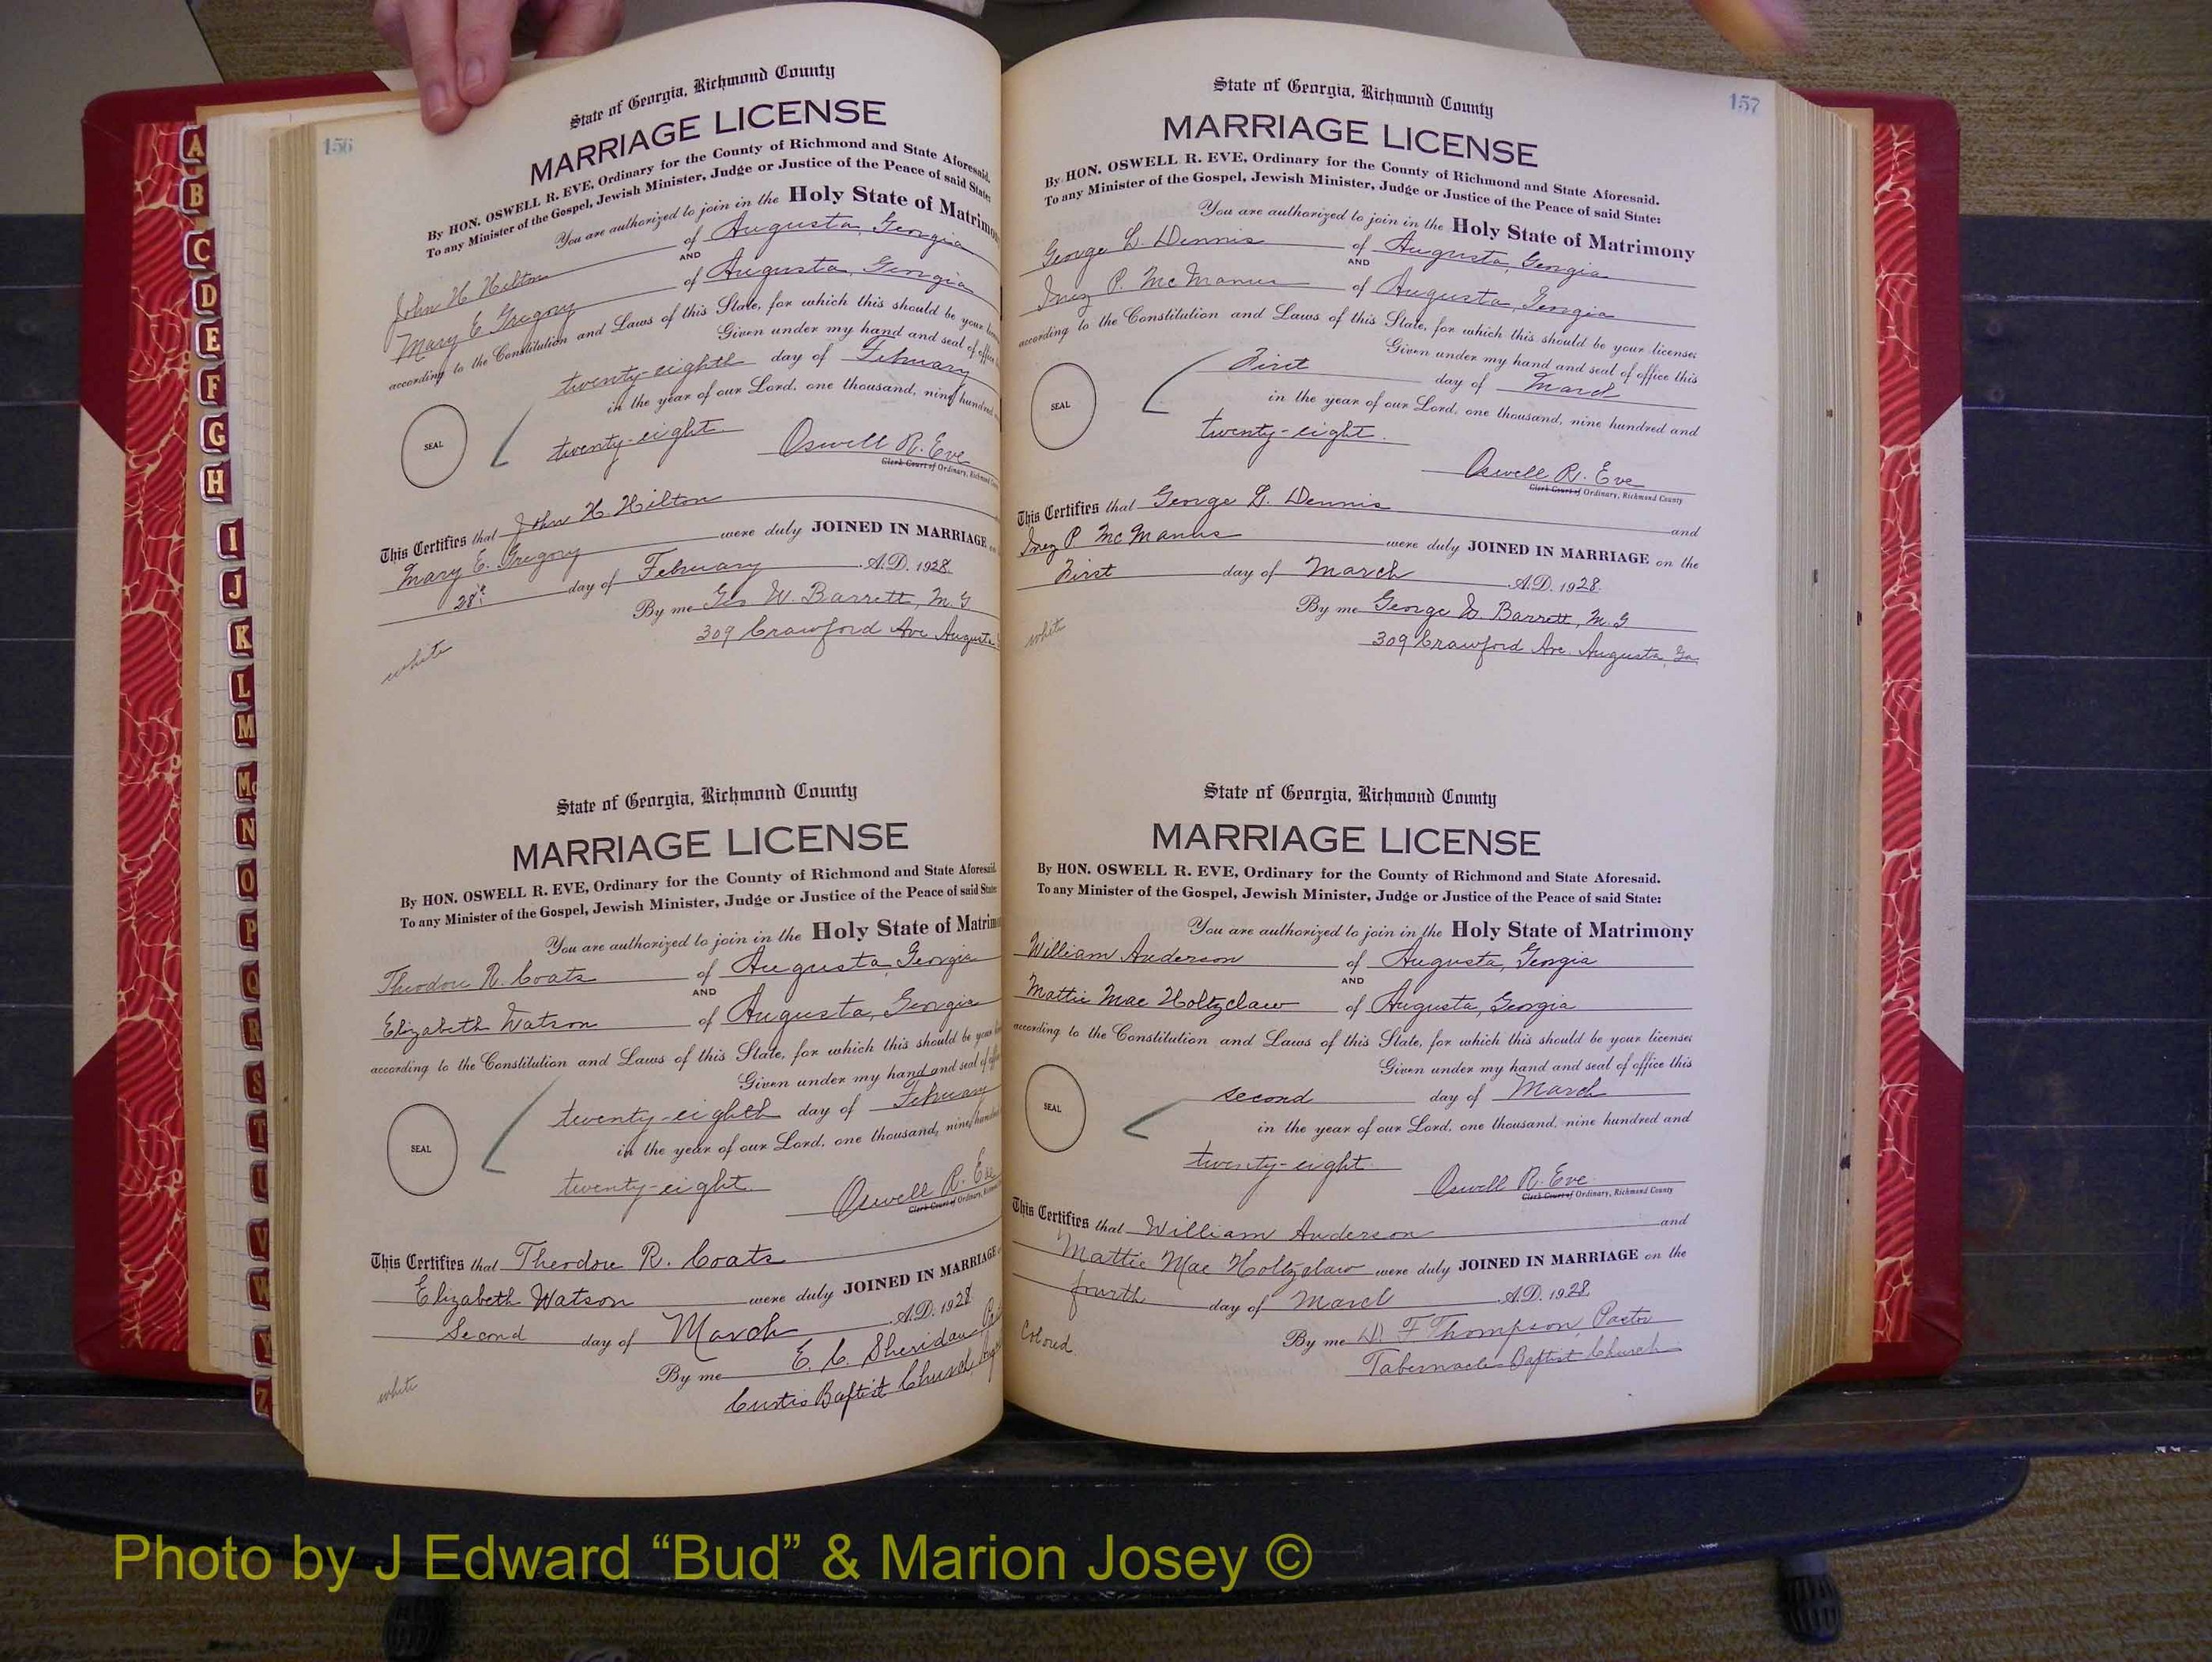 156
State of Georgia, Richmond County
MARRIAGE LICENSE
By HON. OSWELL R. EVE, Ordinary for the County of Richmond and State Aforesaid.
To any Minister of the Gospel, Jewish Minister, Judge or Justice of the Peace of said State:
You are authorized to join in the Holy State of Matrimo
John H Hilton of Augusta, Georgia
AND
Mary E. Gregory of Augusta, Georgia
according to the Constitution and Laws of this State, for which this should be your
Given under my hand and seal of office
twenty-eighth day of February
in the year of our Lord, one thousand, nine hundred
SEAL
twenty-eight
Oswell R. Eve
Clerk Court of Ordinary, Richmond
This Certifies that John H. Hilton
Mary E. Gregory were duly JOINED IN MARRIAGE
28th day of February A.D. 1928.
By me Geo W. Barrett, M. G
309 Crawford Ave Augusta
white
State of Georgia, Richmond County
MARRIAGE LICENSE
By HON. OSWELL R. EVE, Ordinary for the County of Richmond and State Aforesaid.
To any Minister of the Gospel, Jewish Minister, Judge or Justice of the Peace of said State:
You are authorized to join in the Holy State of Matrim
Theodore R. Coats of Augusta, Georgia
AND
Elizabeth Watson of Augusta, Georgia
according to the Constitution and Laws of this State, for which this should be your
Given under my hand and seal of
twenty-eighth day of February
in the year of our Lord, one thousand, nine
SEAL
twenty-eight
Oswell R. Eve
Clerk Court of Ordinary,
This Certifies that Theodore R. Coats
Elizabeth Watson were duly JOINED IN MARRIAGE
Second day of March A.D. 1928
By me E. C. Sheridan
Curtis Baptist Church,
white
157
State of Georgia, Richmond County
MARRIAGE LICENSE
By HON. OSWELL R. EVE, Ordinary for the County of Richmond and State Aforesaid.
To any Minister of the Gospel, Jewish Minister, Judge or Justice of the Peace of said State:
You are authorized to join in the Holy State of Matrimony
George L. Dennis of Augusta, Georgia
AND
Inez P. McManus of Augusta, Georgia
according to the Constitution and Laws of this State, for which this should be your license;
Given under my hand and seal of office this
First day of March
in the year of our Lord, one thousand, nine hundred and
SEAL
twenty-eight.
Oswell R. Eve
Clerk Court of Ordinary, Richmond County
This Certifies that George L. Dennis and
Inez P McManus were duly JOINED IN MARRIAGE on the
First day of March A.D. 1928.
By me George W. Barrett, M. G
309 Crawford Ave. Augusta, Ga.
white
State of Georgia, Richmond County
MARRIAGE LICENSE
By HON. OSWELL R. EVE, Ordinary for the County of Richmond and State Aforesaid.
To any Minister of the Gospel, Jewish Minister, Judge or Justice of the Peace of said State:
You are authorized to join in the Holy State of Matrimony
William Anderson of Augusta, Georgia
AND
Mattie Mae Holtzclaw of Augusta, Georgia
according to the Constitution and Laws of this State, for which this should be your license;
Given under my hand and seal of office this
second day of March
in the year of our Lord, one thousand, nine hundred and
SEAL
twenty-eight.
Oswell R. Eve
Clerk Court of Ordinary, Richmond County
This Certifies that William Anderson and
Mattie Mae Holtzclaw were duly JOINED IN MARRIAGE on the
fourth day of March A.D. 1928.
By me D. F Thompson, Pastor
Tabernacle Baptist Church
Colored.
A
B
C
D
E
F
G
H
I
J
K
L
M
Mc
N
O
P
Q
R
S
T
U
V
W
Y
Z
Photo by J Edward “Bud” & Marion Josey ©